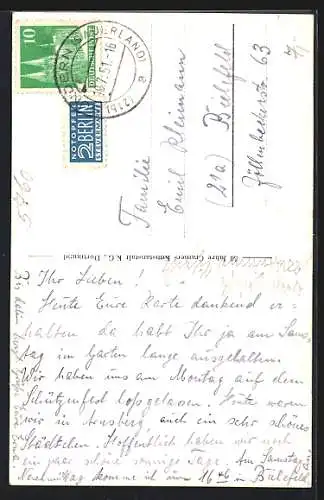 10
DEUTSCHE POST
SUNDERN (SAUERLAND)
(21b)
a
.7.51.-16
NOTOPFER
2 BERLIN
STEUERMARKE
Familie
Emil Kleimann
(21a) Bielefeld
Jöllenbeckerstr 63
50 Jahre Cramers Kunstanstalt K.G., Dortmund
Ihr Lieben!
Heute Eure Karte dankend er-
halten da habt Ihr ja am Sams-
tag im Garten lange ausgehalten.
Wir haben uns am Montag auf dem
Schützenfest losgelassen. Heute waren
wir in Arnsberg, auch ein sehr schönes
Städtchen. Hoffentlich haben wir noch
ein paar schöne sonnige Tage. Am Samstag
Nachmittag kommen wir um 16 in Bielefeld an.